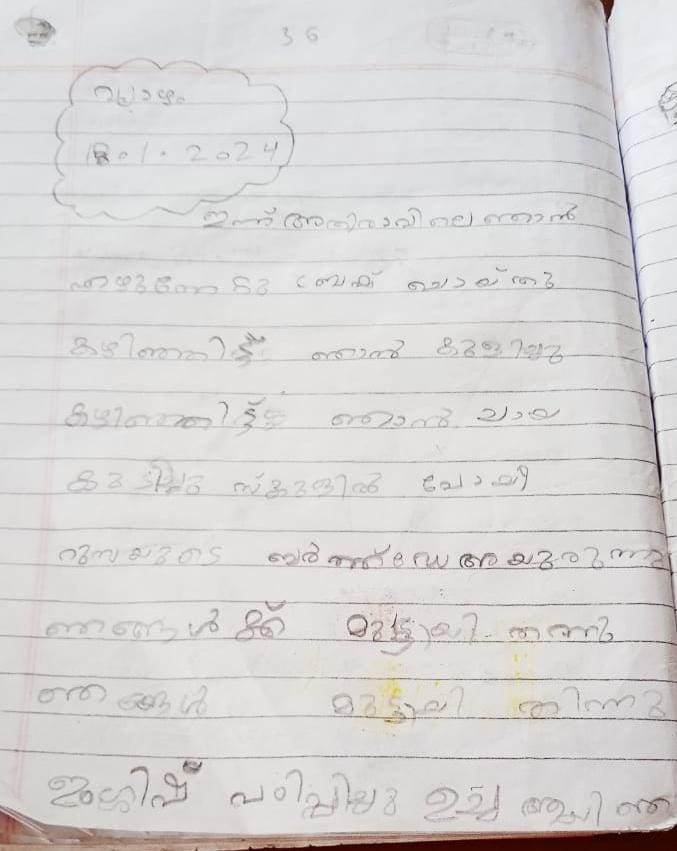 36
വ്യാഴം
18.1.2024
ഇന്ന് അതിരാവിലെ ഞാൻ
എഴുന്നേറ്റു ബ്രഷ് ചെയ്തു
കഴിഞ്ഞിട്ട് ഞാൻ കുളിച്ചു
കഴിഞ്ഞിട്ട് ഞാൻ ചായ
കുടിച്ചു സ്കൂളിൽ പോയി
റുമ്പയുടെ ബർത്ത്ഡേ ആയുരുന്നു
ഞങ്ങൾക്ക് മുട്ടായി തന്നു
ഞങ്ങൾ മുട്ടായി തിന്നു
ഇംഗ്ലിഷ് പഠിപ്പിച്ചു ഉച്ച ആയി ഞ